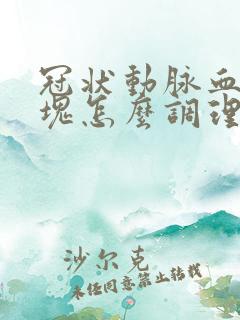 冠状動脉血
塊怎麼調理
沙尔克
未经同意禁止转载